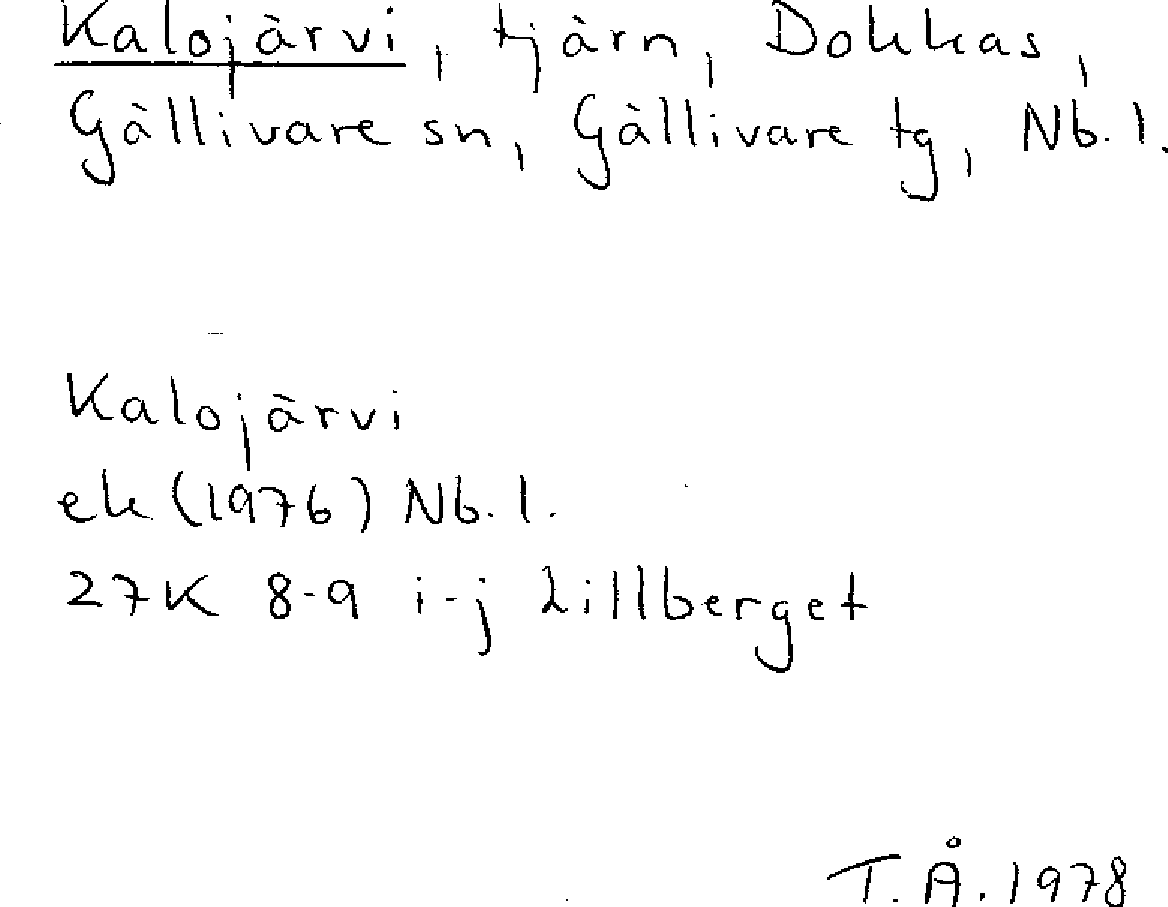 Kalojärvi, tjärn, Dokkas,
Gällivare sn, Gällivare tg, Nb.l.
Kalojärvi
ek (1976) Nb.l.
27K 8-9 i-j Lillberget
T.Å.1978